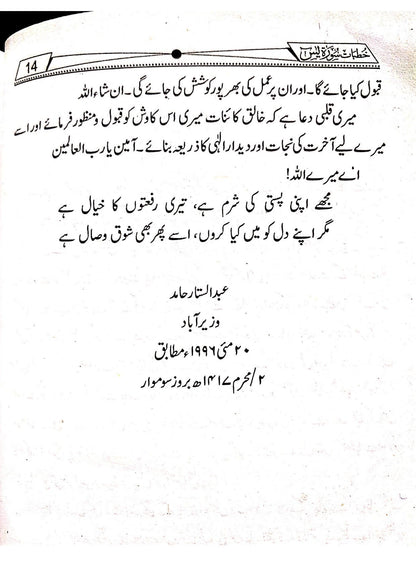 خطبات سورۃ یٰس
14
قبول کیا جائے گا۔ اور ان پر عمل کی بھرپور کوشش کی جائے گی۔ ان شاء اللہ
میری قلبی دعا ہے کہ خالق کائنات میری اس کاوش کو قبول و منظور فرمائے اور اسے
میرے لیے آخرت کی نجات اور دیدار الٰہی کا ذریعہ بنائے۔ آمین یا رب العالمین
اے میرے اللہ!
مجھے اپنی پستی کی شرم ہے، تیری رفعتوں کا خیال ہے
مگر اپنے دل کو میں کیا کروں، اسے پھر بھی شوق وصال ہے
عبدالستار حامد
وزیر آباد
۲۰ مئی ۱۹۹۶ء مطابق
۲/محرم ۱۴۱۷ھ بروز سوموار